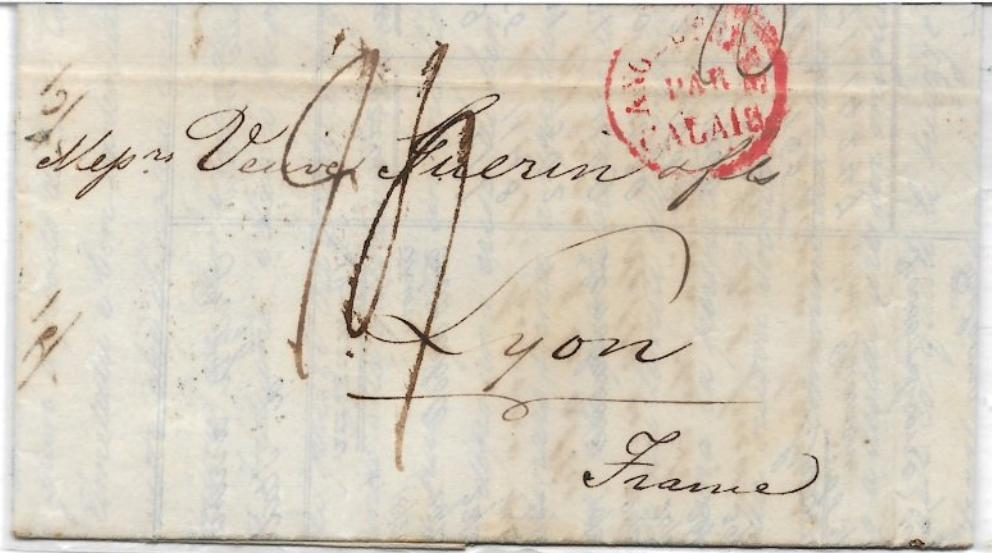 ANGLETERRE
PAR
CALAIS
Messrs Veuve Guerin & fils
Lyon
France